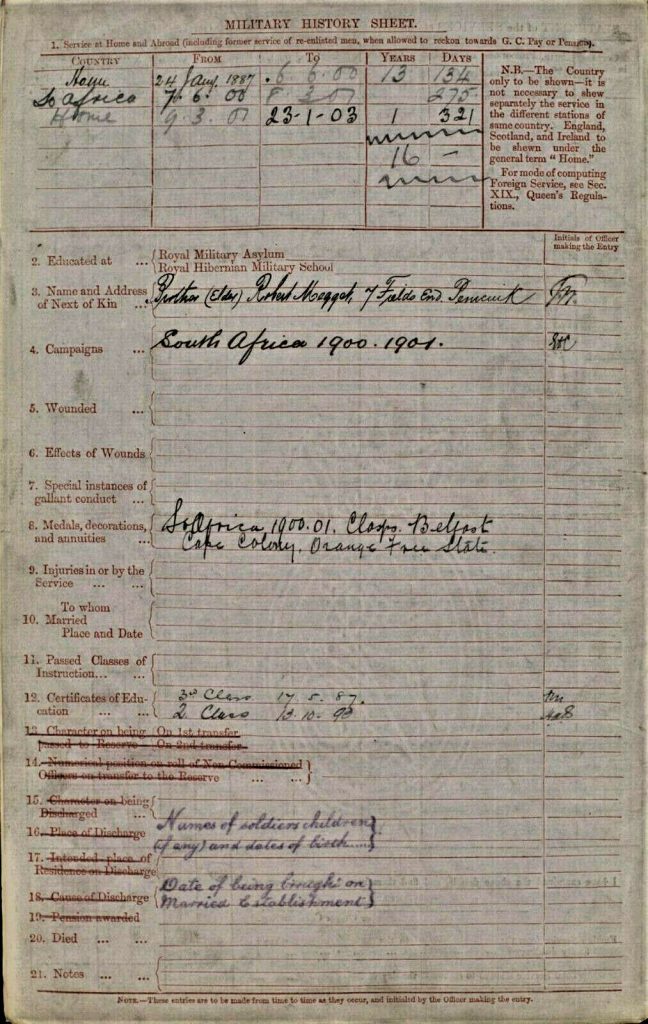 MILITARY HISTORY SHEET.
1. Service at Home and Abroad (including former service of re-enlisted men, when allowed to reckon towards G. C. Pay or Pension).
COUNTRY FROM TO YEARS DAYS
Home 24 Jany 1887 6 6 00 13 134
So Africa 7. 6. 00 8 3 01 275
Home 9. 3. 01 23-1-03 1 321
16 –
N.B.—The Country
only to be shown—it is
not necessary to shew
separately the service in
the different stations of
same country. England,
Scotland, and Ireland to
be shewn under the
general term "Home."
For mode of computing
Foreign Service, see Sec.
XIX., Queen's Regula-
tions.
Initials of Officer
making the Entry
2. Educated at ... Royal Military Asylum
Royal Hibernian Military School
3. Name and Address
of Next of Kin ... Brother (Elder) Robert Meggat, 7 Fields End. Penicuik
4. Campaigns ... South Africa 1900. 1901.
5. Wounded ...
6. Effects of Wounds
7. Special instances of
gallant conduct ...
8. Medals, decorations,
and annuities ... So Africa 1900.01. Clasps. Belfast
Cape Colony. Orange Free State.
9. Injuries in or by the
Service ... ...
10. To whom
Married
Place and Date
11. Passed Classes of
Instruction... ...
12. Certificates of Edu-
cation ... ... 3rd Class 17. 5. 87.
2 Class 13. 10. 93
13. Character on being
passed to Reserve On 1st transfer
On 2nd transfer
14. Numerical position on roll of Non-Commissioned
Officers on transfer to the Reserve ... ...
15. Character on being
Discharged ...
16. Place of Discharge
Names of soldiers children
(if any) and dates of birth.....
17. Intended place of
Residence on Discharge
18. Cause of Discharge
Date of being brought on
Married Establishment
19. Pension awarded
20. Died ... ...
21. Notes ... ...
NOTE.—These entries are to be made from time to time as they occur, and initialed by the Officer making the entry.